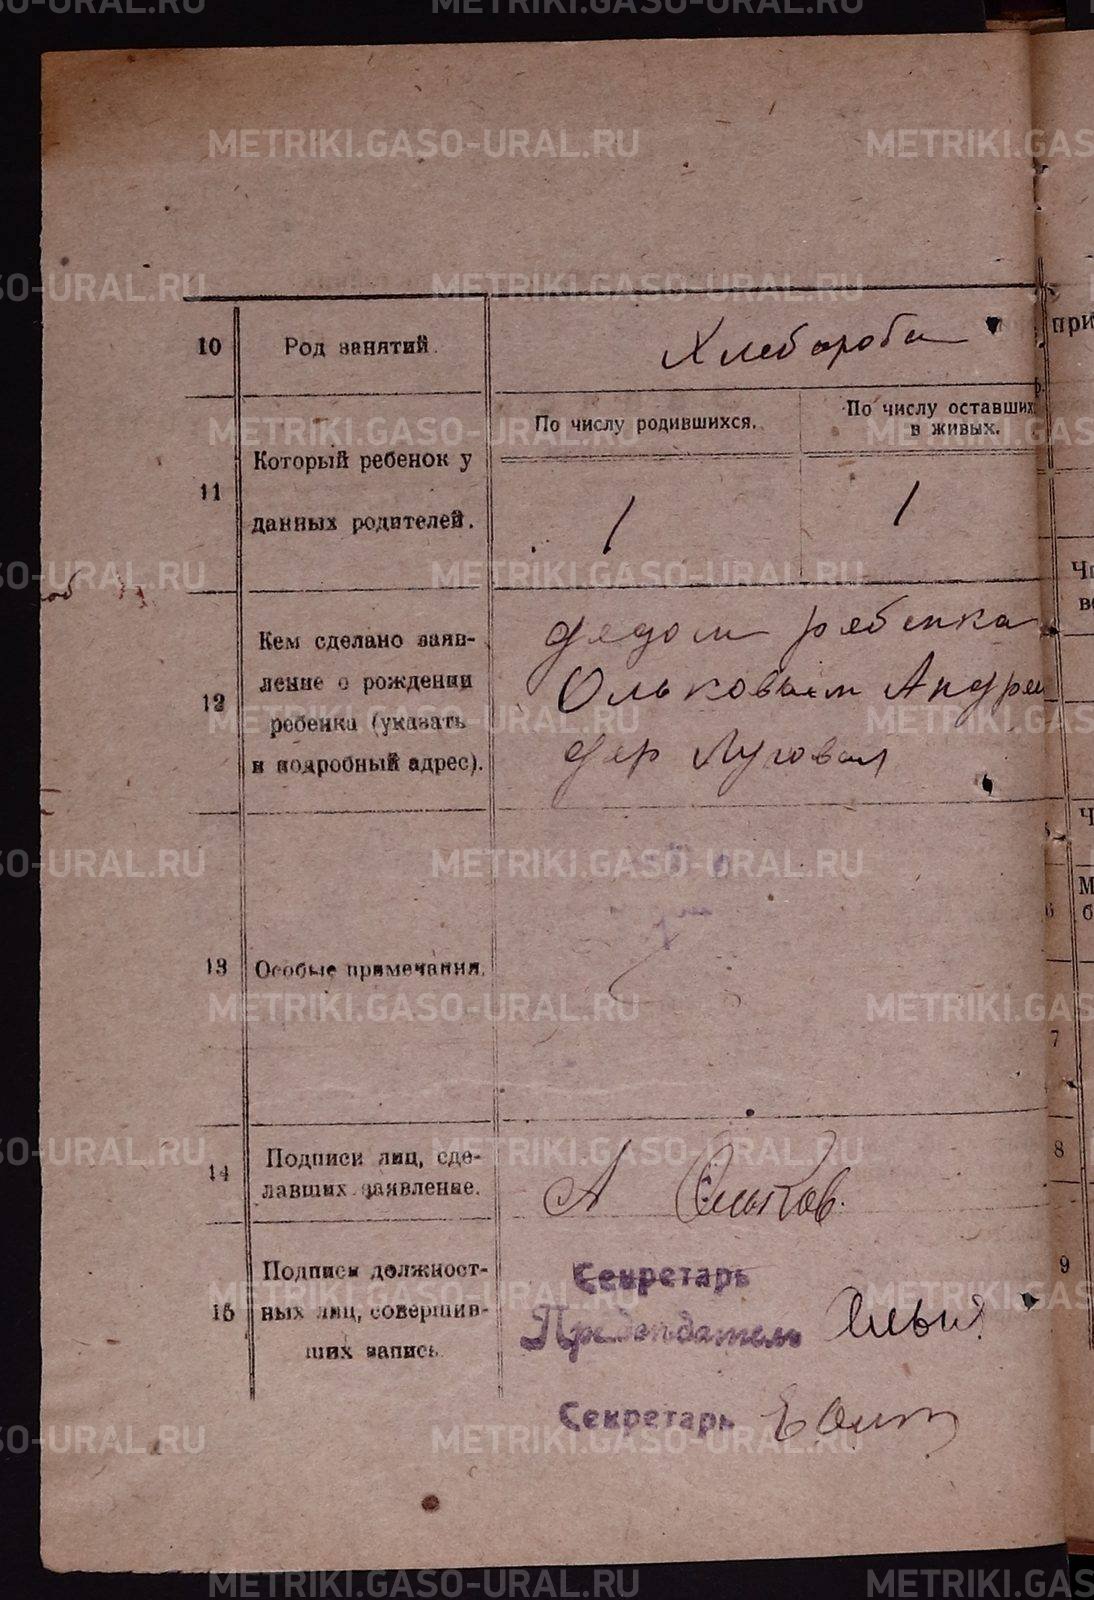 10 Род занятий. Хлебороба
11 Который ребенок у данных родителей.
По числу родившихся. По числу оставших
в живых.
1 1
12 Кем сделано заяв-
ление о рождении
ребенка (указать
и подробный адрес).
дядом ребенка
Ольковым Андрее
дер Луговая
13 Особые примечания.
14 Подписи лиц, сде-
лавших заявление.
А Ольков.
15 Подписи должност-
ных лиц, совершив-
ших запись.
Секретарь
Председатель
Секретарь
при
7
8
9
METRIKI.GASO-URAL.RU